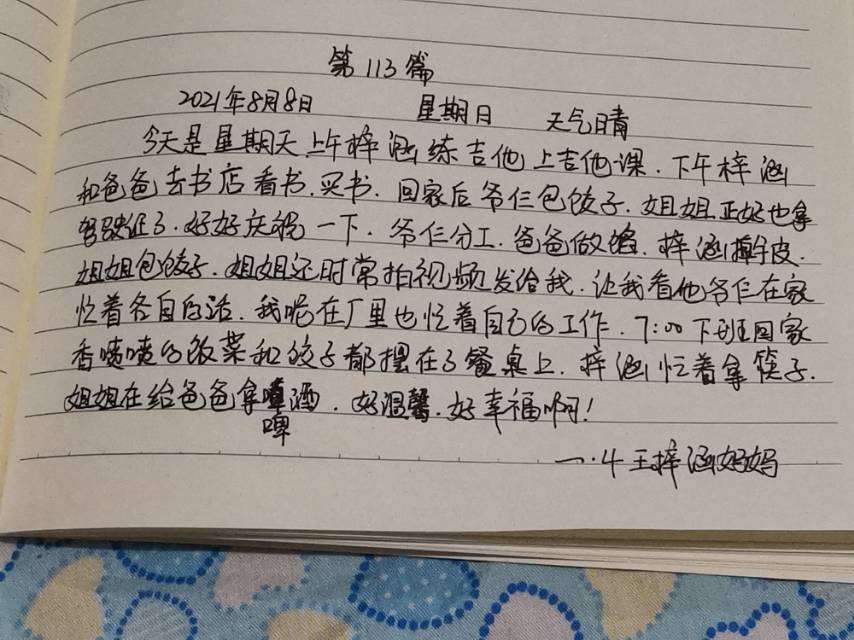 第113篇
2021年8月8日 星期日 天气晴
今天是星期天上午梓涵练吉他上吉他课.下午梓涵
和爸爸去书店看书.买书.回家后爷仨包饺子.姐姐正好也拿
驾驶证了.好好庆祝一下.爷仨分工.爸爸做馅.梓涵擀皮.
姐姐包饺子.姐姐还时常拍视频发给我.让我看他爷仨在家
忙着各自的活.我呢在厂里也忙着自己的工作.7:00下班回家
香喷喷的饭菜和饺子都摆在了餐桌上.梓涵忙着拿筷子.
姐姐在给爸爸拿啤酒.好温馨.好幸福啊!
啤
一.4王梓涵妈妈